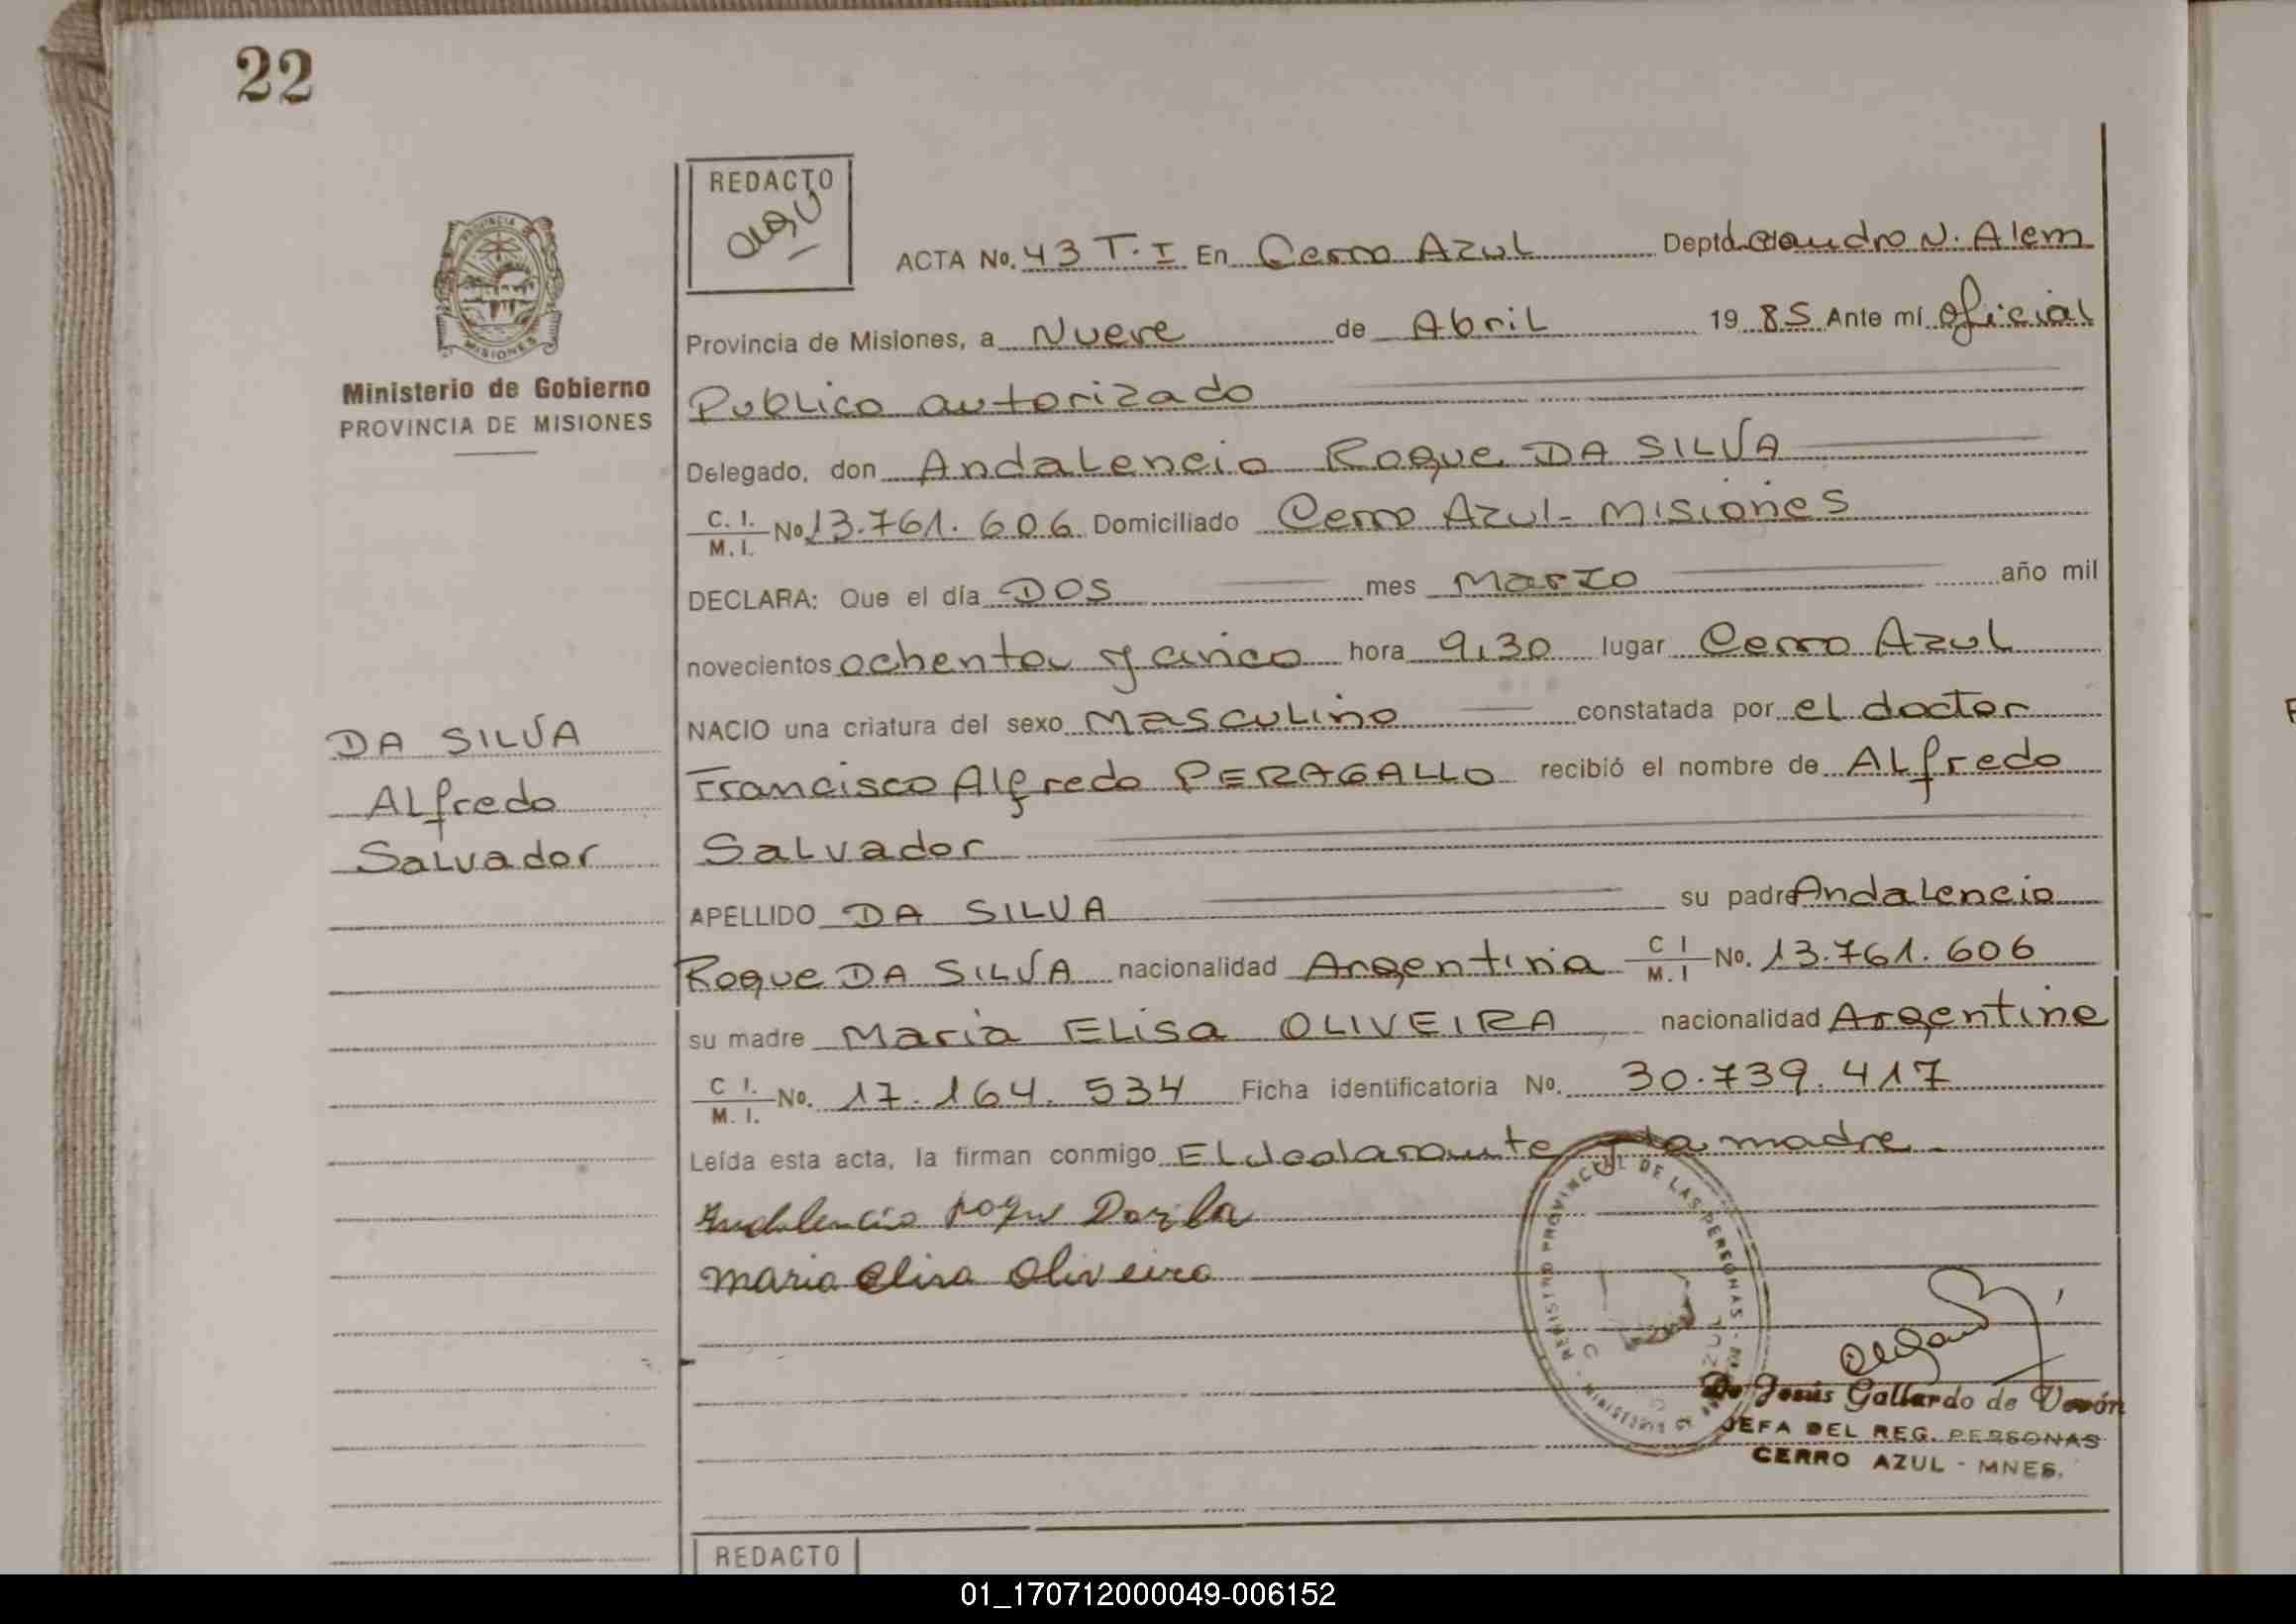 22
REDACTO
PROVINCIA
MISIONES
Ministerio de Gobierno
PROVINCIA DE MISIONES
ACTA No. 43 T.I En Cerro Azul Deptd. Leandro N. Alem
Provincia de Misiones, a Nueve de Abril 19 85 Ante mí Oficial
Publico autorizado
Delegado, don Andalencio Roque DA SILVA
C. I. / M. I. No 13.761.606 Domiciliado Cerro Azul - Misiones
DECLARA: Que el día DOS mes Marzo año mil
novecientos ochenta y cinco hora 9,30 lugar Cerro Azul
NACIO una criatura del sexo Masculino constatada por el doctor
Francisco Alfredo PERAGALLO recibió el nombre de ALfredo
Salvador
APELLIDO DA SILVA su padre Andalencio
Roque DA SILVA nacionalidad Argentina C I / M. I No. 13.761.606
su madre Maria ELisa OLIVEIRA nacionalidad Argentina
C I. / M. I. No. 17.164.534 Ficha identificatoria No. 30.739.417
Leída esta acta, la firman conmigo EL declarante y la madre
DA SILVA
ALfredo
Salvador
maria Elisa Oliveira
REGISTRO PROVINCIAL DE LAS PERSONAS
Jesús Gallardo de Verón
JEFA DEL REG. PERSONAS
CERRO AZUL - MNES.
REDACTO
01_170712000049-006152